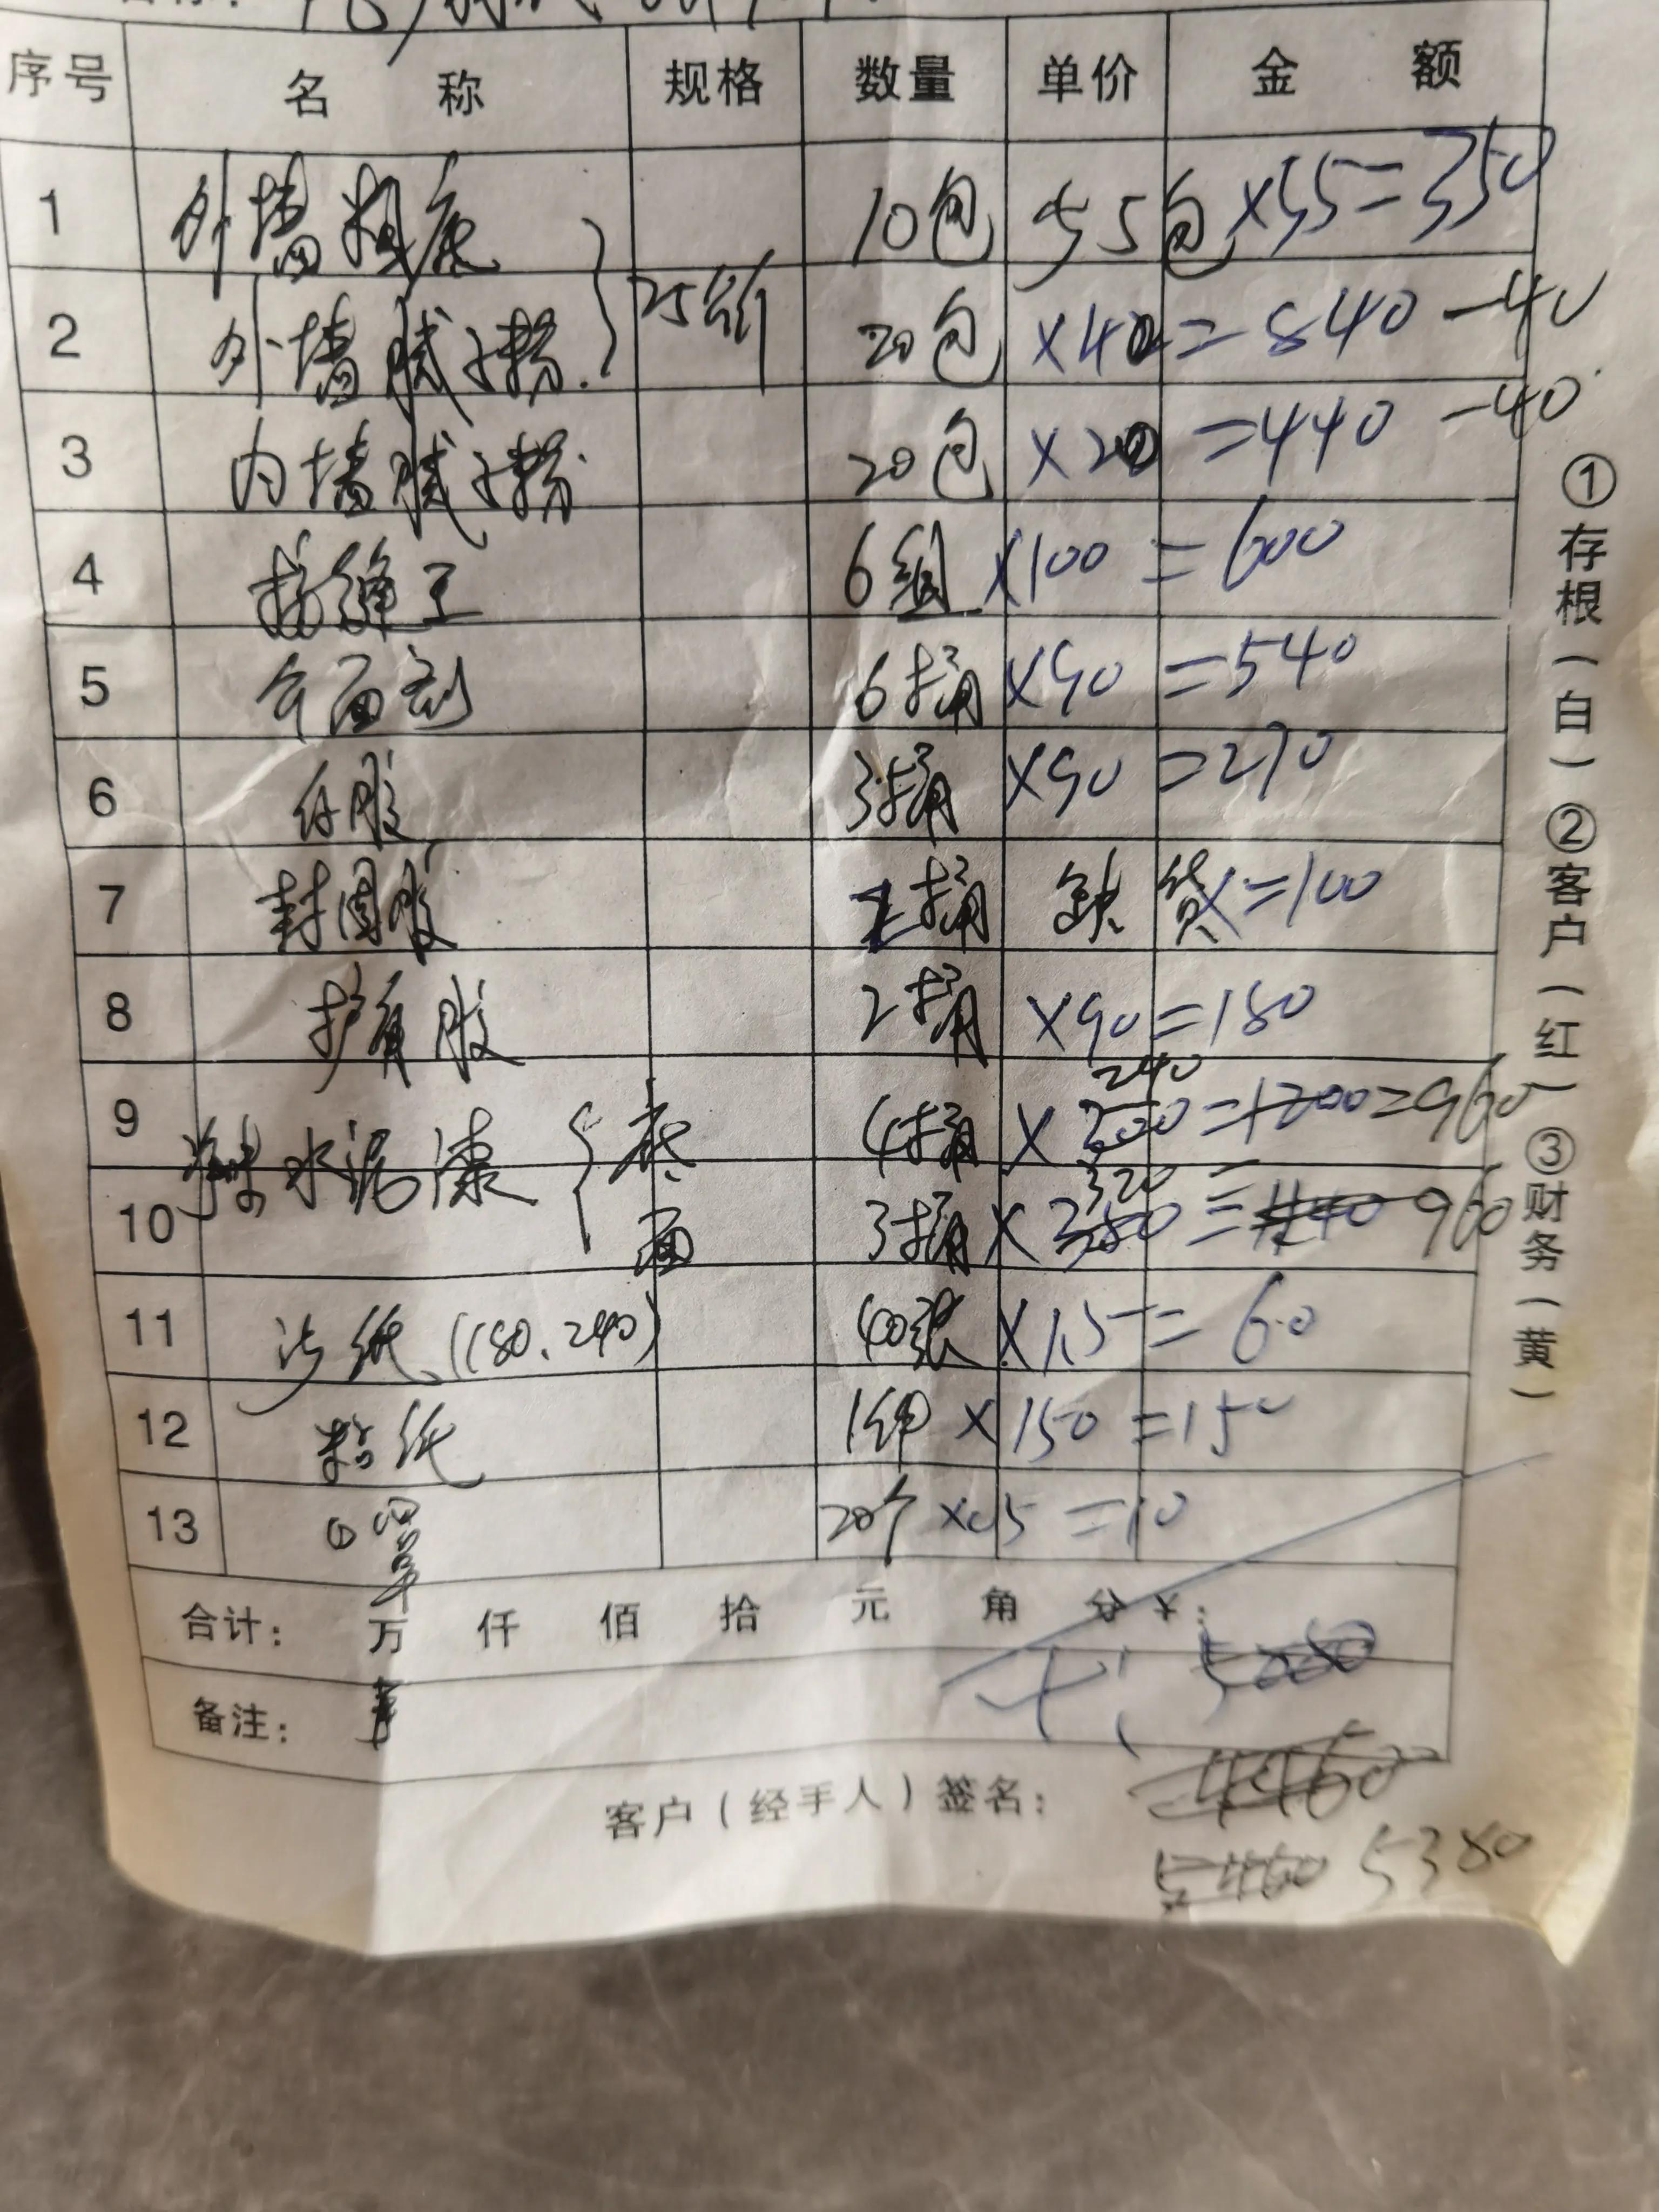 序号 名称 规格 数量 单价 金额
1 外墙粗底 10包 55包 ×35=350
2 外墙腻子粉 25公斤 20包 ×42=840 -40
3 内墙腻子粉 20包 ×20 =440 -40
4 接缝王 6组 ×100 =600
5 介面剂 6桶 ×90 =540
6 白胶 3桶 ×90 =270
7 封固胶 1桶 缺货 ×=100
8 护角胶 2桶 ×90=180
240
9 水泥漆 底 4桶 ×300=1200=960
320
10 面 3桶 ×380=1140 960
11 沙纸(180.240) 40张 ×1.5= 60
12 粘纸 1件 ×150 =150
13 口罩 20个 ×0.5 =10
合计: 万 仟 佰 拾 元 角 分 ¥:
备注:
客户(经手人)签名:
4460
5460 5380
①存根(白)②客户(红)③财务(黄)